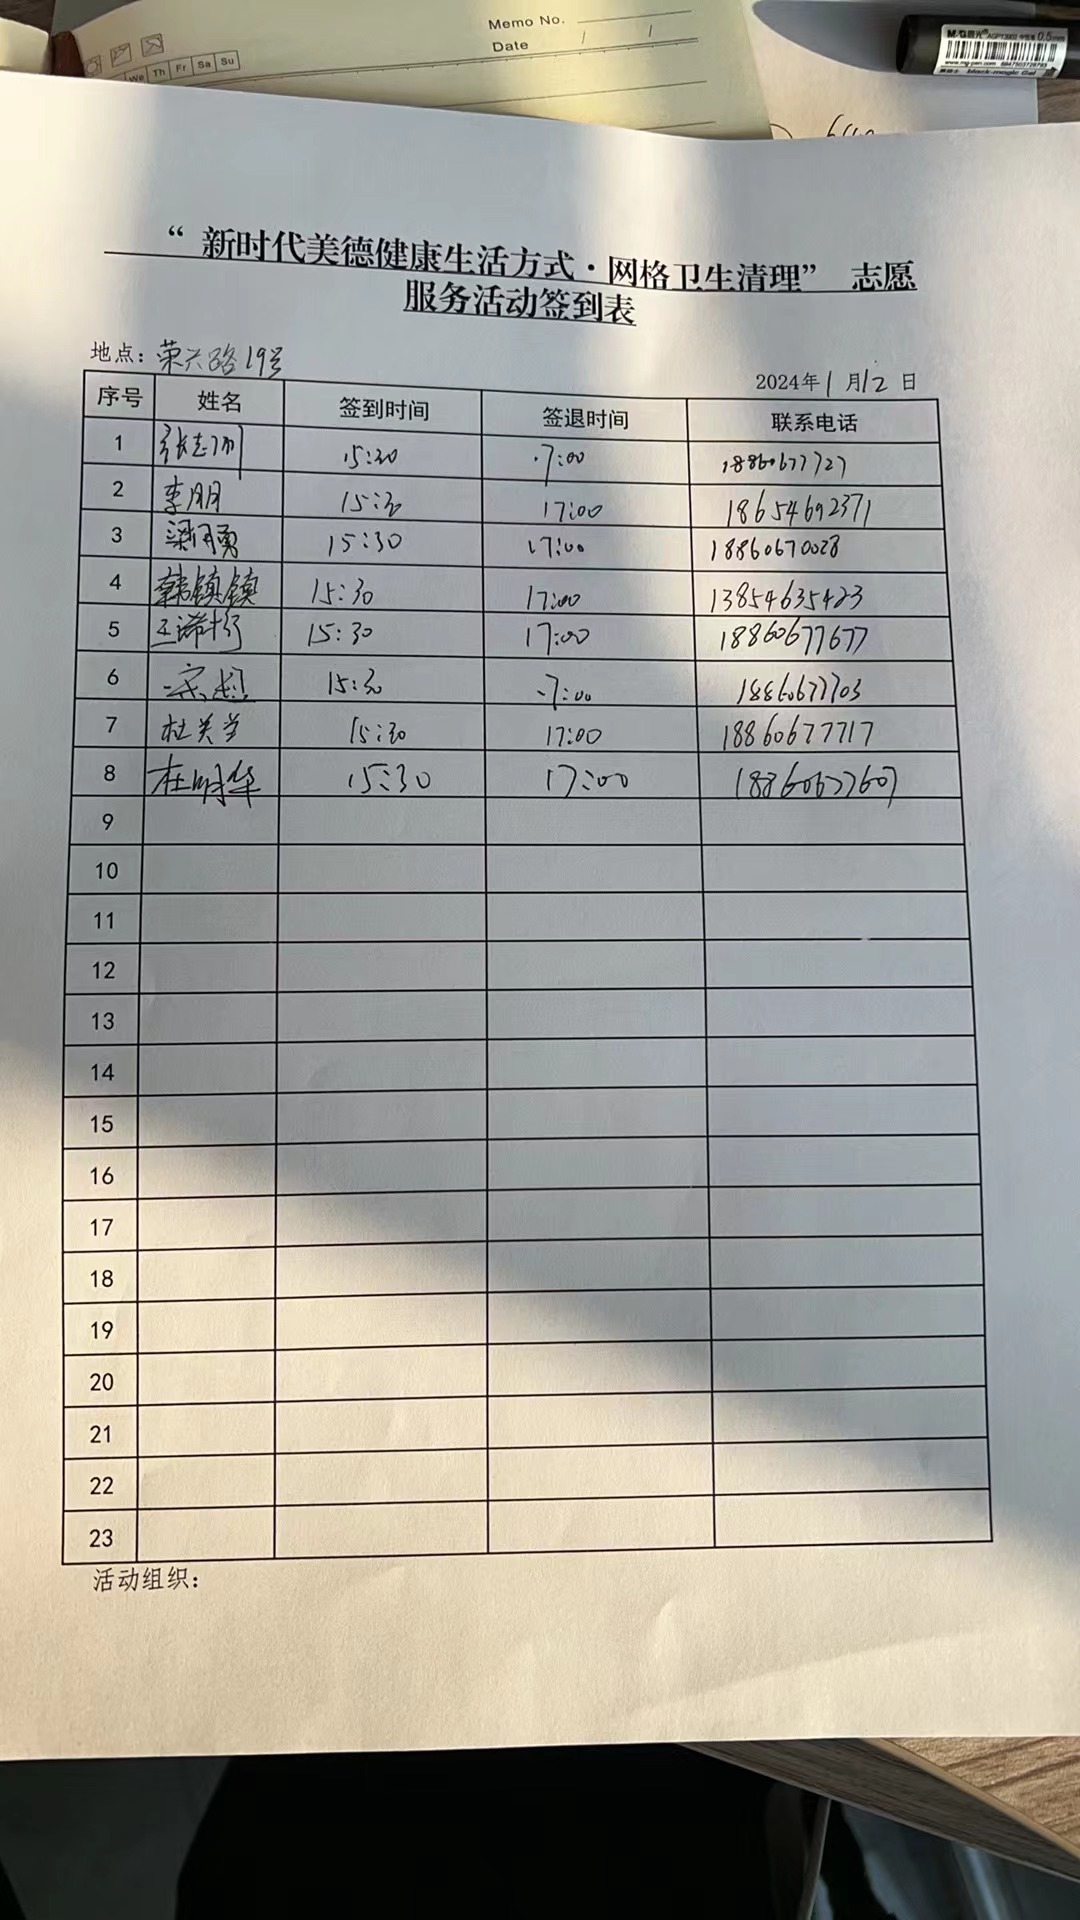 Memo No.
Date / /
We Th Fr Sa Su
M&G晨光 AGP13902 中性笔 0.5mm
“ 新时代美德健康生活方式·网格卫生清理” 志愿
服务活动签到表
地点：荣兴路19号
2024年1月12日
序号 姓名 签到时间 签退时间 联系电话
1 15:30 17:00 18860677727
2 李朋 15:30 17:00 18654692371
3 15:30 17:00 18860670028
4 韩镇镇 15:30 17:00 13854635423
5 15:30 17:00 18860677677
6 宋超 15:30 17:00 18860677703
7 杜关学 15:30 17:00 18860677717
8 杜明华 15:30 17:00 18860677607
9
10
11
12
13
14
15
16
17
18
19
20
21
22
23
活动组织：